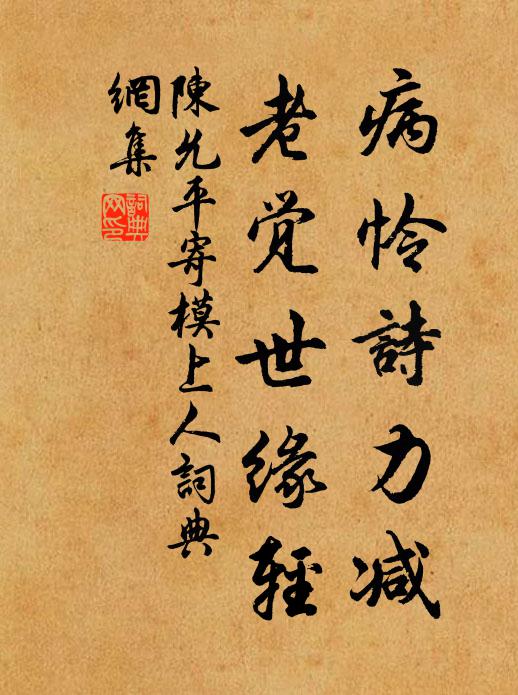 病怜詩力减
老覺世緣輕
陳允平寄模上人詞典
網集
詞典
网印